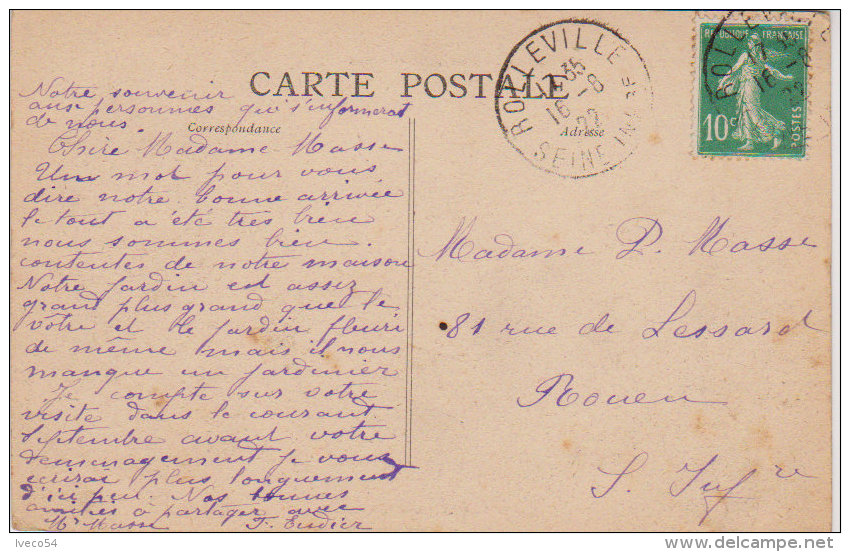 CARTE POSTALE
Correspondance
Adresse
ROLLEVILLE
17 35
16 - 8
22
SEINE INFRE
REPUBLIQUE FRANÇAISE
10c
POSTES
Notre souvenir
aux personnes qui s'informerat
de nous.
Chère Madame Masse
Un mot pour vous
dire notre bonne arrivée
le tout a été très bien
nous sommes bien
contentes de notre maison
Notre jardin est assez
grand plus grand que le
vôtre et le jardin fleuri
de même mais il nous
manque un jardinier
Je compte sur votre
visite dans le courant
Septembre avant votre
demenagement je vous
ecrirai plus longuement
d'ici peu. Nos bonnes
amitiés à partager avec
Mr Masse F. Eudier
Madame P. Masse
81 rue de Lessard
Rouen
S. Infre
Iveco54
delcampe.net